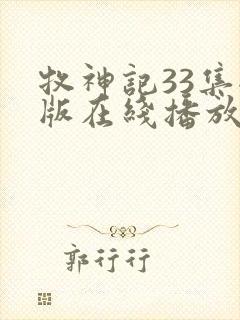 牧神記33集
版在綫播放
郭行行